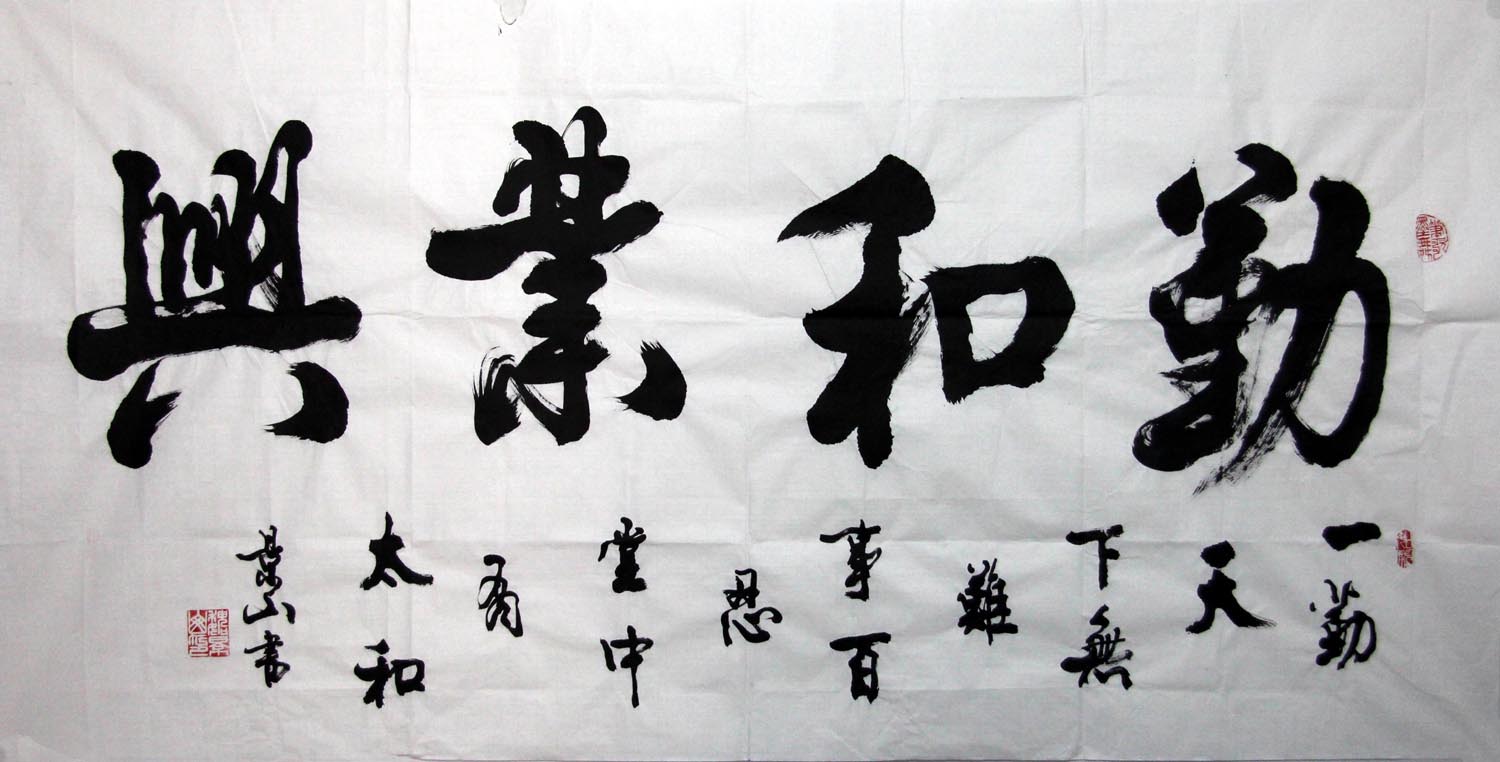 勤和業興
一勤
天
下無
難
事百
忍
堂中
有
太和
景山書